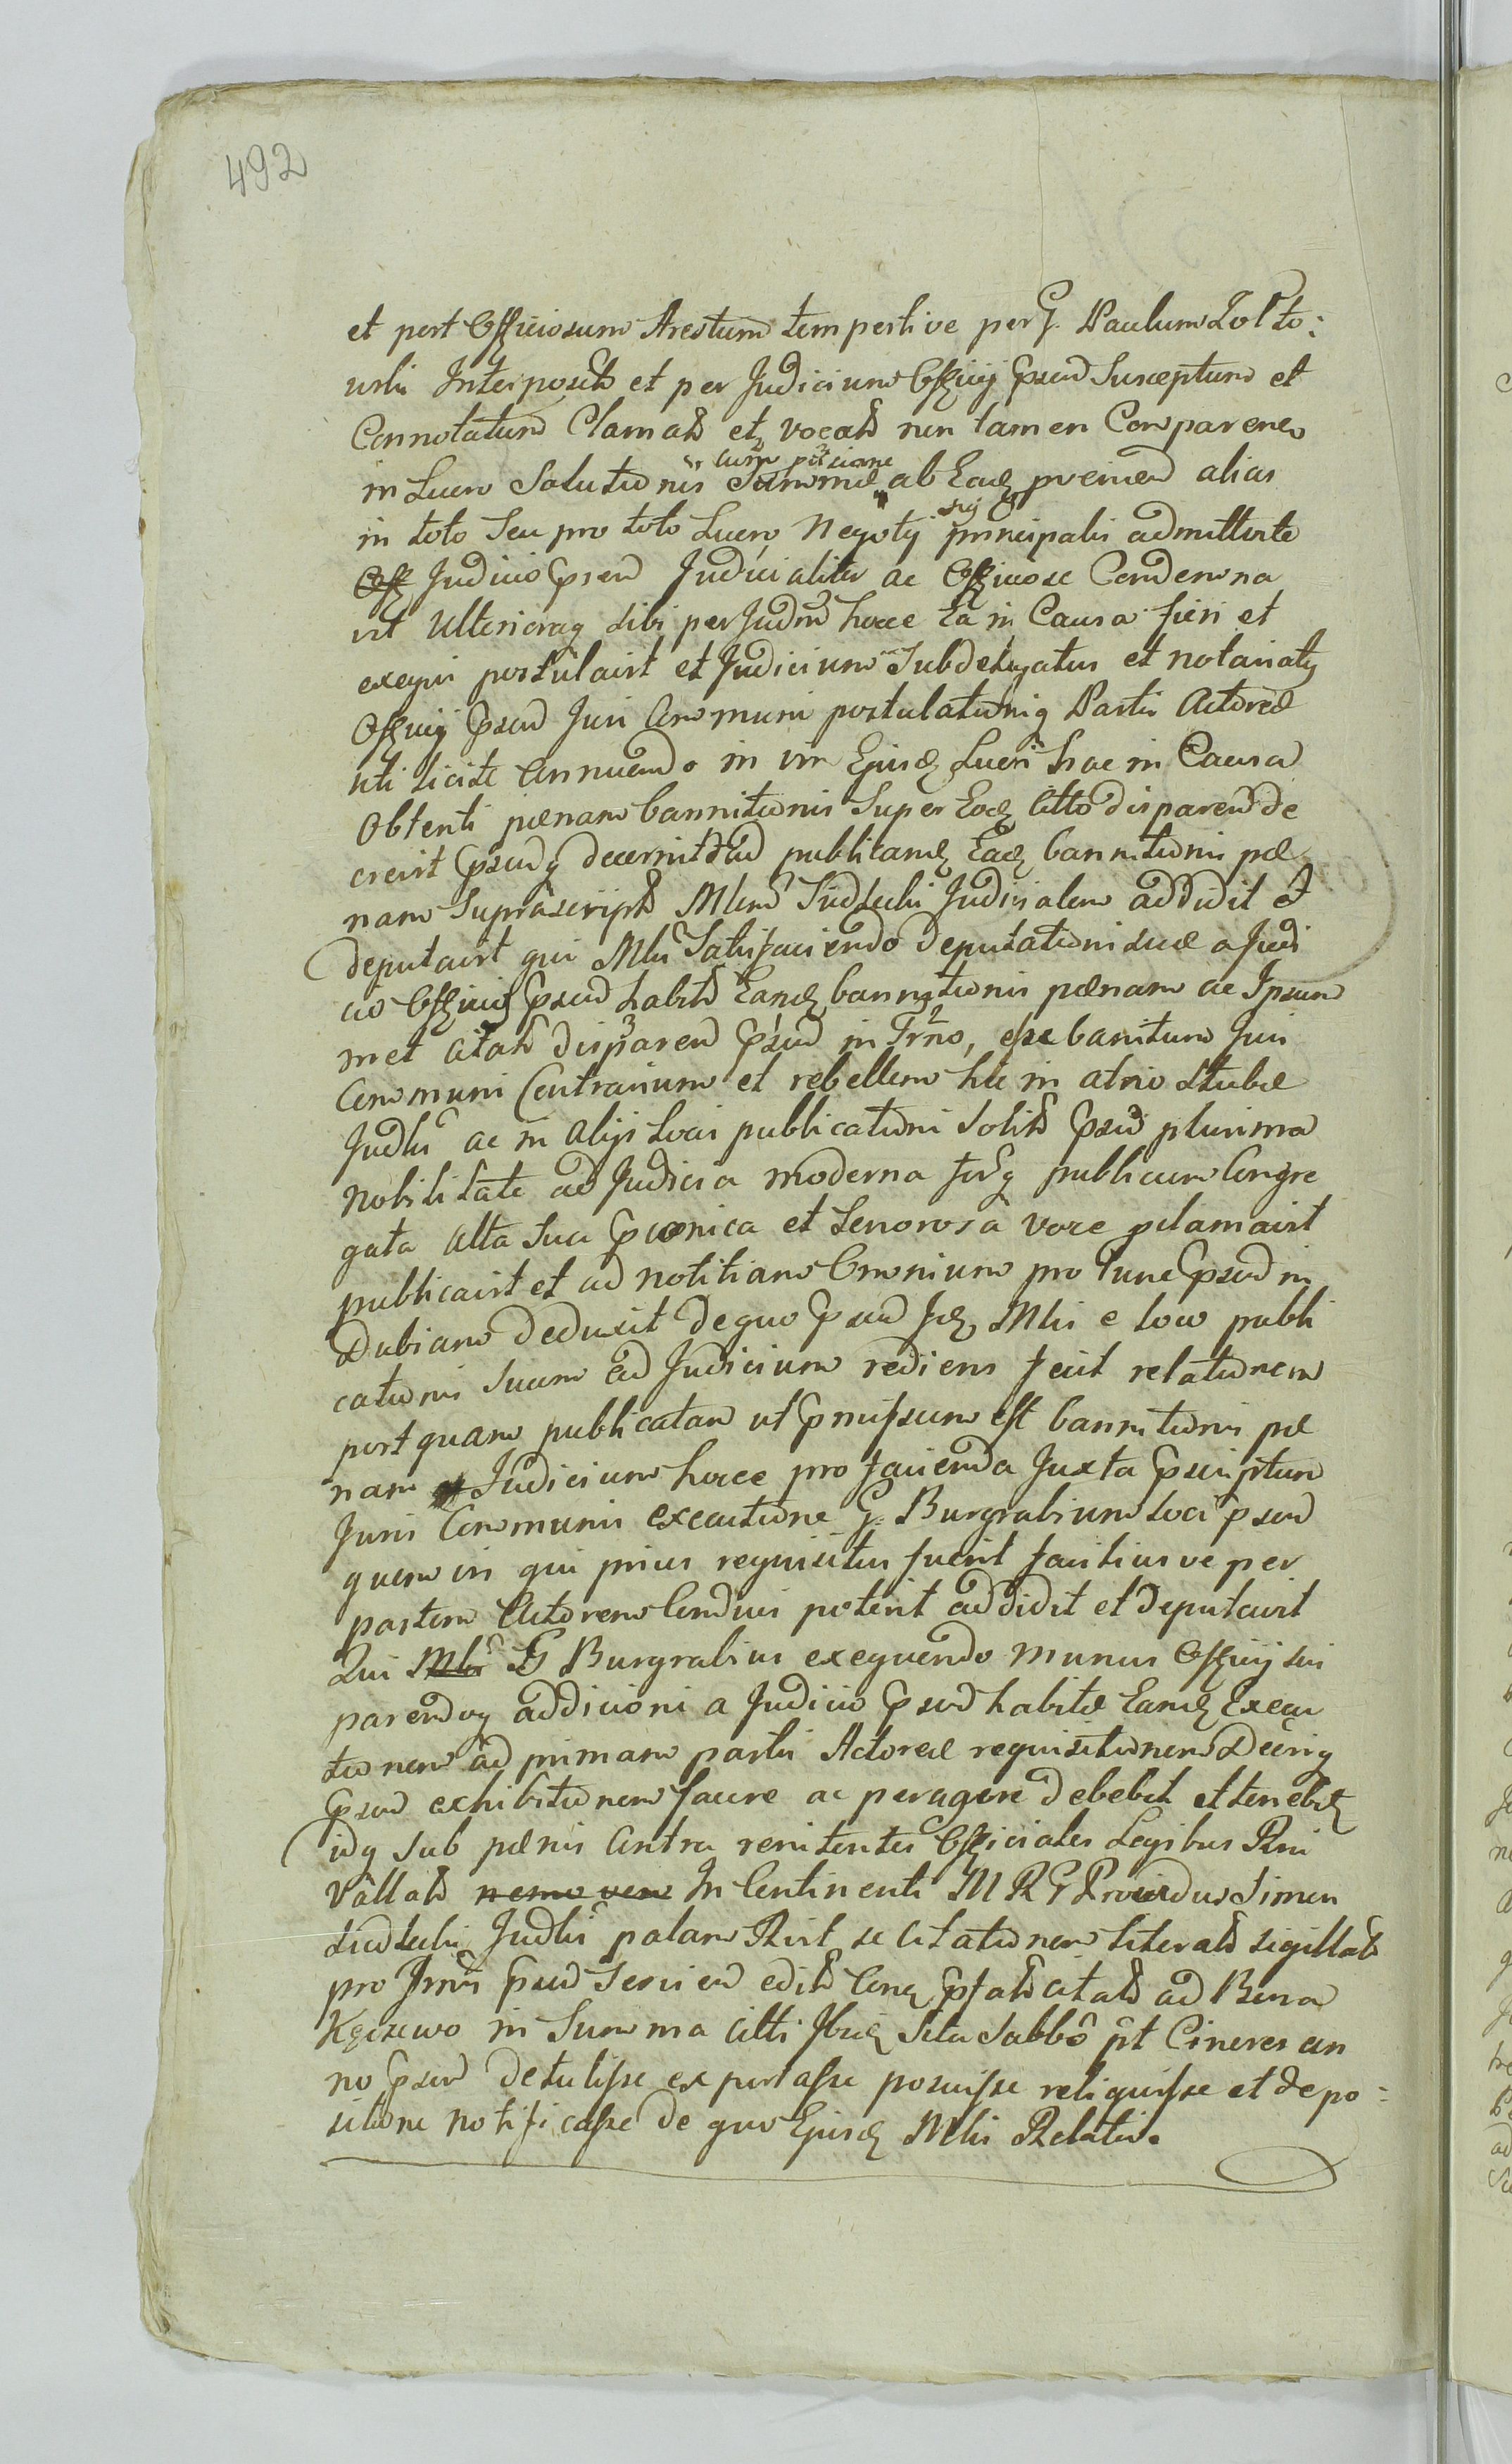 492
et post Officiosum Arestum tempestive per G. Paulum
Interposit et per Judicium Officij prsens Susceptum et
Connotatum Clamat et vocat non tamen Comparen
cum portione
in Lucro Solutionis Summæ ab Eod premen alias
sui
in toto Seu pro toto Lucro Negotij principalis admittente
Off Judicio prsen Judicialiter ac Officiose Condemna
vit Ulterioraq sibi per Judm hocce Ea in Causa fieri et
exequi postulavit et Judicium Subdelegatus et notariatq
Officij prsens Juri Communi postulationiq Partis Actoreæ
uti licite annuendo in vim Ejusd Lucri hac in Causa
Obtenti pœnam bannitionis Super Eod Citto disparend de
crevit prsensq decernit Ad publicand Eand bannitionis pœ
nam Suprascript Mlem Sudlecki Judicialem addidit et
deputavit qui Mlis Satisfaciendo deputationi suæ a Judi
cio Officij prsens habit Eand bannitionis pœnam ac Ipsum
met Citat disparen prsens in Trno, esse banitum Juri
Communi Contrarium et rebellem hic in atrio Stubæ
Judlis ac in alijs locis publicationi Solit prsens plurima
Nobilitate ad Judicia moderna forq publicum Congre
gata alta Sua præconica et Senorosa voce pclamavit
publicavit et ad notitiam Omnium pro tunc prsens in
dubiam deduxit de quo prsens Jd Mlis e loco publi
cationis Suam ad Judicium rediens fecit relationem
post quam publicatam ut præmissum est bannitionis pœ
nam Judicium hocce pro facienda Juxta præscriptum
Juris Communis executione G. Burgrabium loci prsens
quem vis qui prius requisitus fuerit facilius ve per
partem Actoream Conduci poterit addidit et deputavit
Qui Mlis G Burgrabius exequendo munus Officij sui
parendoq addicioni a Judicio prsens habitæ Eand Execu
tionem ad primam partis Actoreæ requisitionem Decriq
prsens exhibitionem facere ac peragere debebit et tenebit
idq sub pœnis Contra renitentes Officiales Legibus Rni
Vallat nemo vero In Continenti M R G Providus Simon
Sudlecki Judlis palam Rvit se Citationem literat sigillat
pro Trnis prsens Servien edit Cong pfat Citat ad Bona
Kęszewo in Summa Citti Ibid Sita Sabbo pt Cineres an
no prsen detulisse exportasse posuisse reliquisse et de po:
sitione notificasse de quo Ejusd Mlis Relatio.